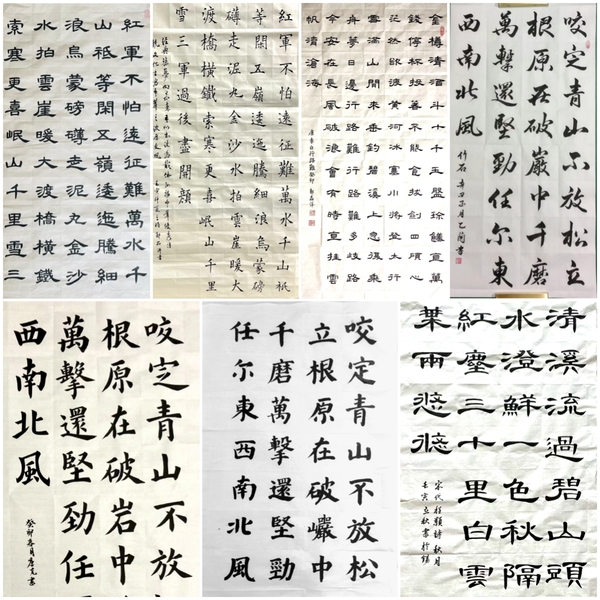 紅軍不怕遠征難萬水千
山祇等閑五嶺逶迤騰細
浪烏蒙磅礴走泥丸金沙
水拍雲崖暖大渡橋橫鐵
索寒更喜岷山千里雪三
紅軍不怕遠征難萬水千山祇
等閑五嶺逶迤騰細浪烏蒙磅
礴走泥九金沙水拍雲崖暖大
渡橋橫鐵索寒更喜岷山千里
雪三軍過後盡開顏
金樽清酒斗十千玉盤珍饈直萬
錢停杯投箸不能食拔劍四顧心
茫然欲渡黃河冰塞川將登太行
雪滿山閑來垂釣碧溪上忽復乘
舟夢日邊行路難行路難多歧路
今安在長風破浪會有時直掛雲
帆濟滄海
唐李白行路難癸卯
咬定青山不放松立
根原在破巖中千磨
萬擊還堅勁任尔東
西南北風
竹石
咬定青山不放
根原在破岩中
萬擊還堅勁任
西南北風
癸卯春月
咬定青山不放松
立根原在破巖中
千磨萬擊還堅勁
任尔東西南北風
清溪流過碧山頭
水澄鮮一色秋隔
紅塵三十里白雲
葉兩悠悠
宋代程顥詩秋月
壬寅立秋書於